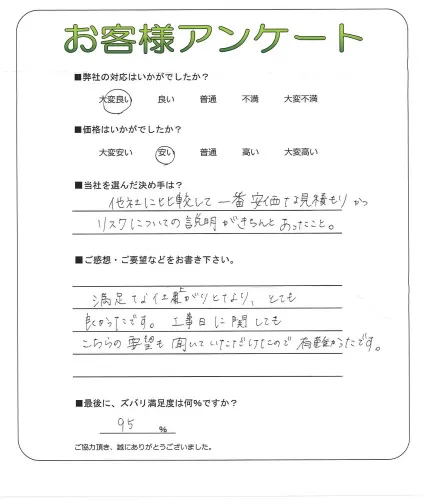 お客様アンケート
■弊社の対応はいかがでしたか？
大変良い　良い　普通　不満　大変不満
■価格はいかがでしたか？
大変安い　安い　普通　高い　大変高い
■当社を選んだ決め手は？
他社に比較して一番安価な見積もりかつ
リスクについての説明がきちんとあったこと。
■ご感想・ご要望などをお書き下さい。
満足な仕上がりとなり、とても
良かったです。工事日に関しても
こちらの要望も聞いていただけたので有難かったです。
■最後に、ズバリ満足度は何％ですか？
95 ％
ご協力頂き、誠にありがとうございました。